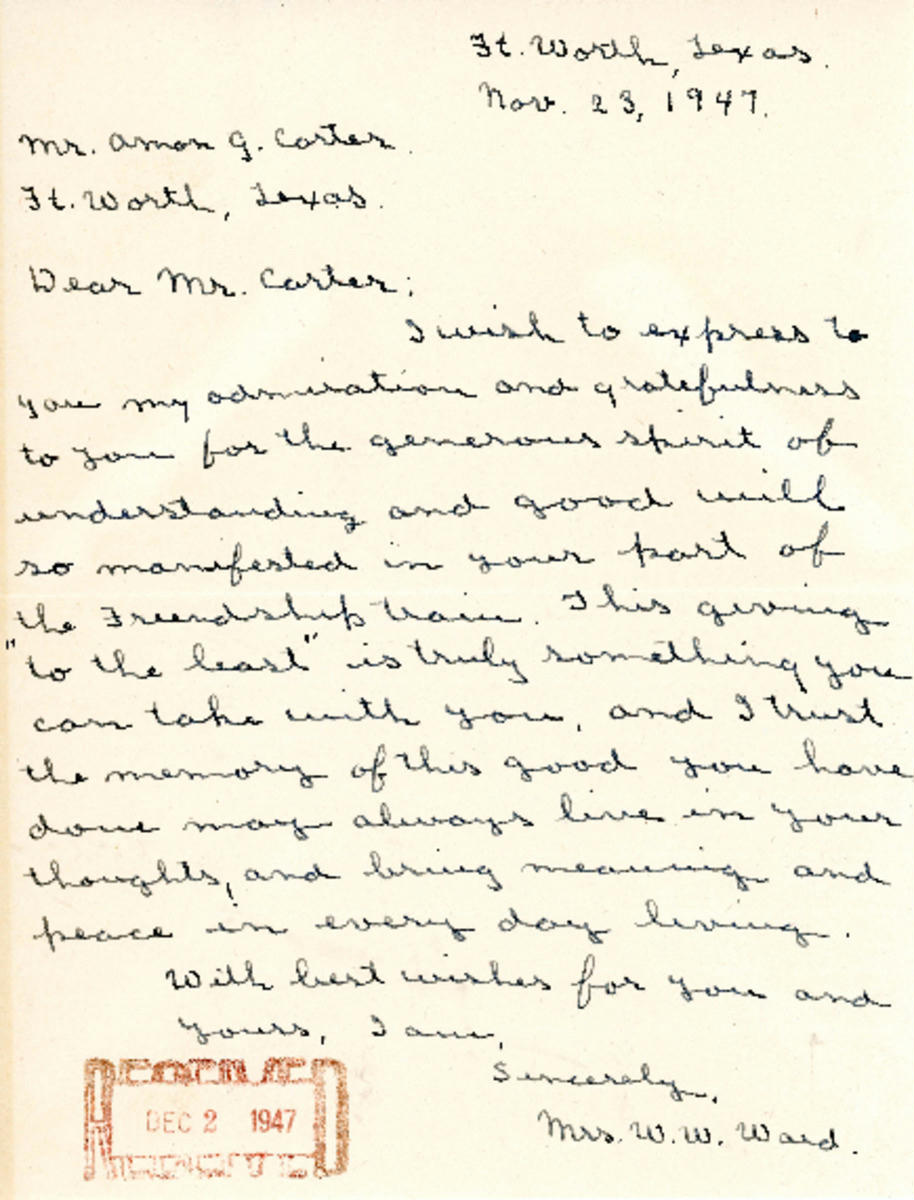 Ft. Worth, Texas.
Nov. 23, 1947.
Mr. Amon G. Carter.
Ft. Worth, Texas.
Dear Mr. Carter:
I wish to express to
you my admiration and gratefulness
to you for the generous spirit of
understanding and good will
so manifested in your part of
the Friendship train. This giving
"to the least" is truly something you
can take with you, and I trust
the memory of this good you have
done may always live in your
thoughts, and bring meaning and
peace in every day living.
With best wishes for you and
yours, I am,
Sincerely,
Mrs. W. W. Ward.
RECEIVED
DEC 2 1947